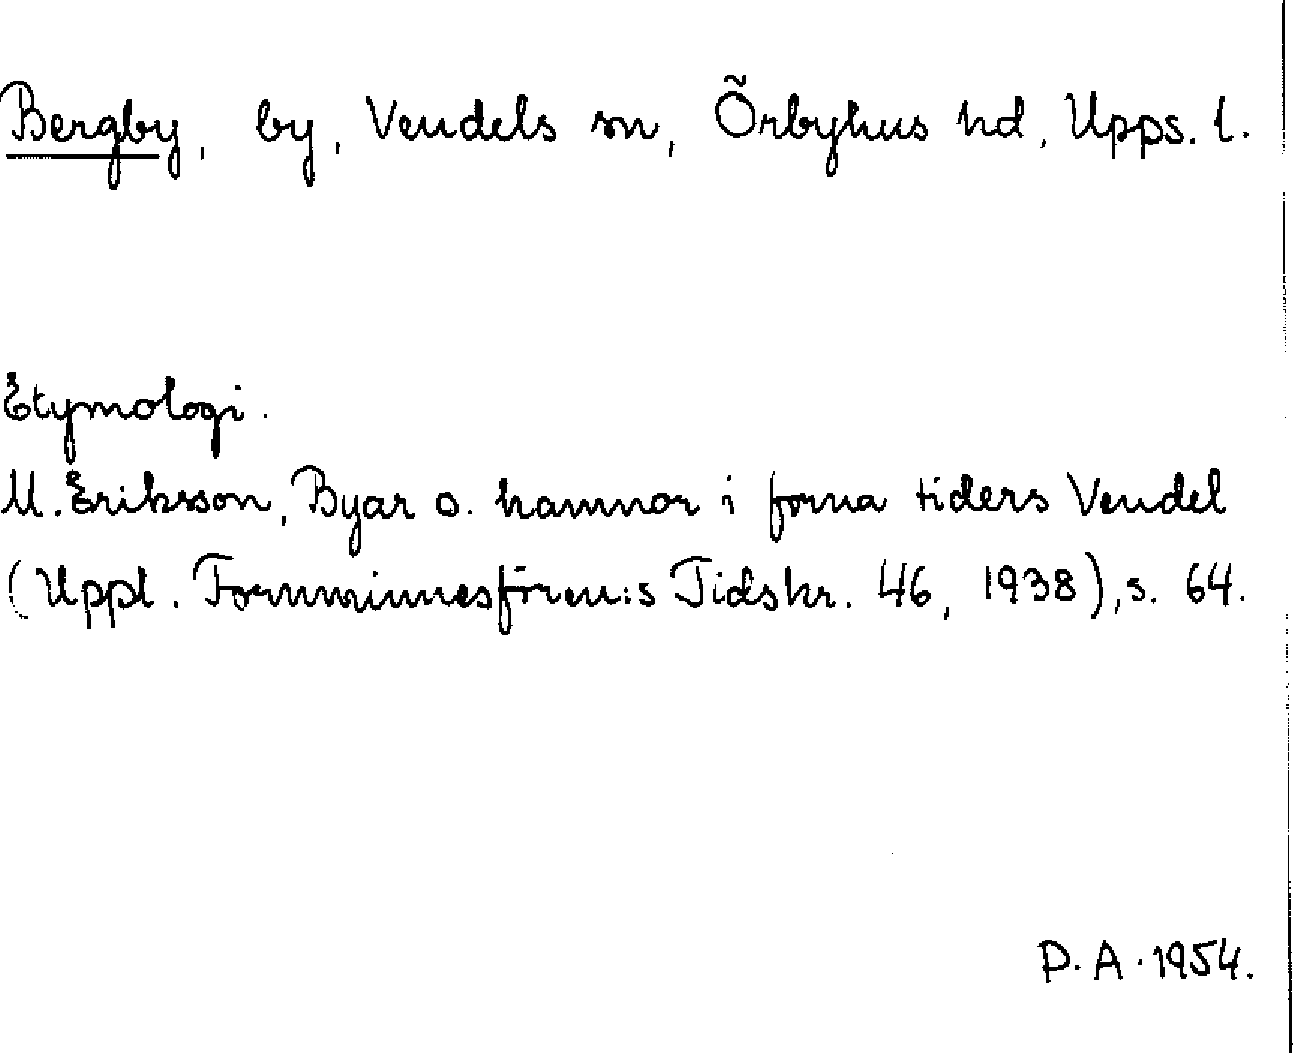 Bergby, by, Vendels sn, Örbyhus hd, Upps. l.
Etymologi.
M. Eriksson, Byar o. hamnar i forna tiders Vendel
(Uppl. Fornminnesfören:s Tidskr. 46, 1938), s. 64.
P. A. 1954.